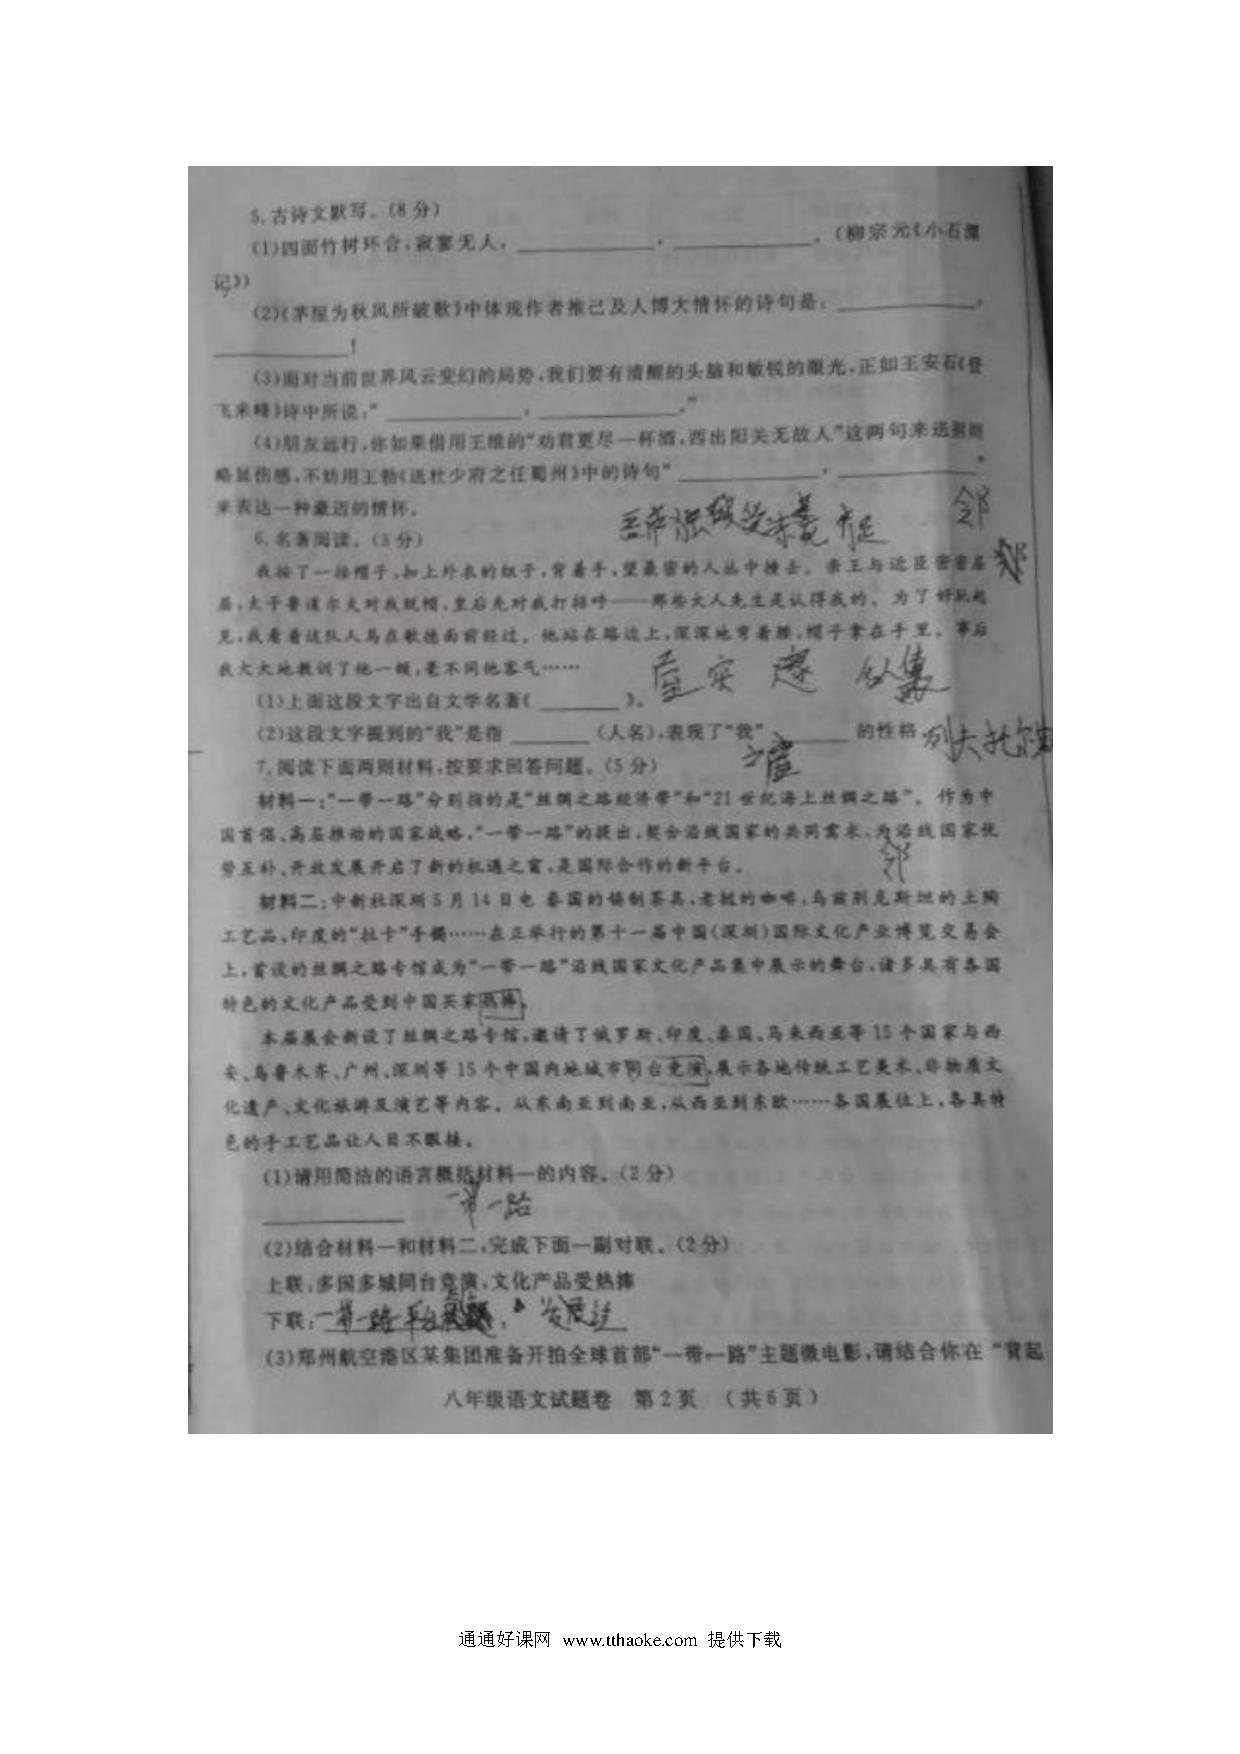 5.古诗文默写。(8分)
(1)四面竹树环合,寂寥无人,____________,____________。(柳宗元《小石潭
记》)
(2)《茅屋为秋风所破歌》中体现作者推己及人博大情怀的诗句是:____________,
____________!
(3)面对当前世界风云变幻的局势,我们要有清醒的头脑和敏锐的眼光,正如王安石《登
飞来峰》诗中所说:“____________,____________。”
(4)朋友远行,你如果借用王维的“劝君更尽一杯酒,西出阳关无故人”这两句来送别则
略显伤感,不妨用王勃《送杜少府之任蜀州》中的诗句“____________,____________”
来表达一种豪迈的情怀。
邻
6.名著阅读。(3分)
我按了一按帽子,扣上外衣的纽子,背着手,望最密的人丛中撞去。亲王与近臣密密层
层,太子鲁道尔夫对我脱帽,皇后先对我打招呼——那些大人先生是认得我的。为了好玩起
见,我看着这队人马在歌德面前经过。他站在路边上,深深地弯着腰,帽子拿在手里。事后
我大大地教训了他一顿,毫不同他客气……
(1)上面这段文字出自文学名著《________》。
(2)这段文字提到的“我”是指________(人名),表现了“我”________的性格
列夫托尔
7.阅读下面两则材料,按要求回答问题。(5分)
材料一:“一带一路”分别指的是“丝绸之路经济带”和“21世纪海上丝绸之路”。作为中
国首倡、高层推动的国家战略,“一带一路”的提出,契合沿线国家的共同需求,为沿线国家优
势互补、开放发展开启了新的机遇之窗,是国际合作的新平台。
邻
材料二:中新社深圳5月14日电 泰国的锡制茶具,老挝的咖啡,乌兹别克斯坦的土陶
工艺品,印度的“拉卡”手镯……在正举行的第十一届中国(深圳)国际文化产业博览交易会
上,首设的丝绸之路专馆成为“一带一路”沿线国家文化产品集中展示的舞台,诸多具有各国
特色的文化产品受到中国买家热捧。
本届展会新设了丝绸之路专馆,邀请了俄罗斯、印度、泰国、马来西亚等15个国家与西
安、乌鲁木齐、广州、深圳等15个中国内地城市同台竞演,展示各地传统工艺美术、非物质文
化遗产、文化旅游及演艺等内容。从东南亚到南亚,从西亚到东欧……各国展位上,各具特
色的手工艺品让人目不暇接。
(1)请用简洁的语言概括材料一的内容。(2分)
____________
一带一路
(2)结合材料一和材料二,完成下面一副对联。(2分)
上联:多国多城同台竞演,文化产品受热捧
下联:一带一路
(3)郑州航空港区某集团准备开拍全球首部“一带一路”主题微电影,请结合你在“背起
八年级语文试题卷 第2页 (共6页)
通通好课网 www.tthaoke.com 提供下载